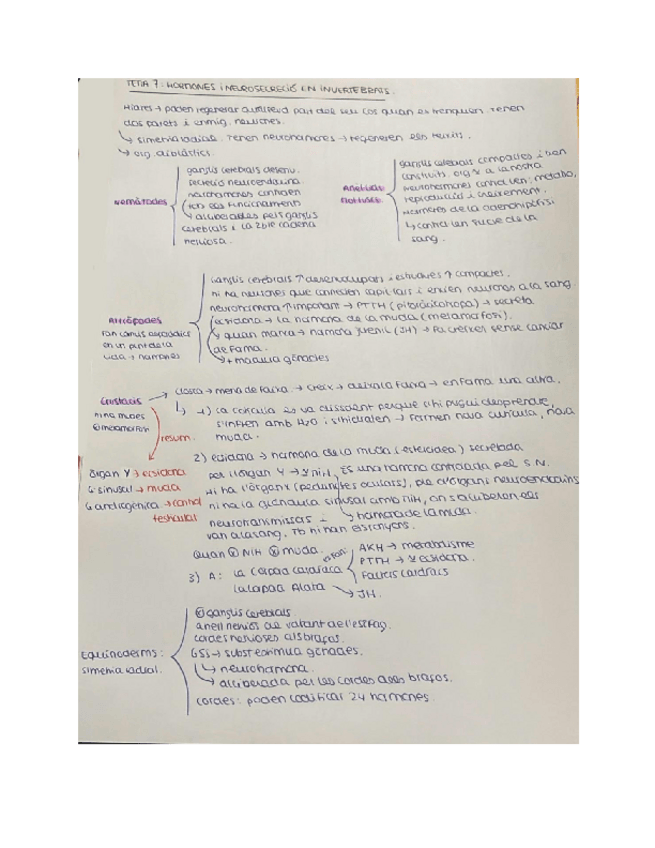 TEMA 7: HORMONES i NEUROSECRECIÓ EN INVERTEBRATS.
Hidres → poden regenerar qualsevol part del seu cos quan es trenquen. Tenen
dos parets i enmig neurones.
↳ simetria radial. Tenen neurohormones → regeneren els teixits.
↳ org. diblàstics.
Nemàtodes
ganglis cerebrals desenv.
secreció neuroendocrina
neurohormones controlen
tot els funcionament
alliberades pels ganglis
cerebrals i la doble cadena
nerviosa.
Anèl·lids
Mol·luscs
ganglis cerebrals compactes i ben
construïts. org
neurohormones control ven: metabo,
reproducció i creixement.
Hormones de la adenohipòfisi
↳ control en sucre de la
sang.
Artròpodes
fan canvis esporàdics
en un punt de la
vida → hormones
Ganglis cerebrals ↑ desenvolupats i estructures ↑ compactes.
hi ha neurones que connecten i envien neurones a la sang.
neurohormona ↑ important → PTTH (protoracicotropa) → secreta
ecdisona → la hormona de la muda (metamorfosi).
↳ quan marxa → hormona juvenil (JH) → fa créixer sense canviar
de forma.
↳ + madura gònades
Crustacis
hi ha mudes
⊖ metamorfosi
→ closca → mena de faixa → creix → deixa la faixa → en forma una altra.
↳ 1) la cutícula es va cuissant perquè s'hi pugui desprendre,
s'inflen amb H2O i s'hidraten → formen nova cutícula, nova
muda.
resum.
2) ecdisona → hormona de la muda (esteroidea) secretada
per l'òrgan Y → MIH, és una hormona controlada pel S.N.
Hi ha l'òrgan X (peduncles oculars), ple d'òrgans neuroendocrins
hi ha la glàndula sinusal amb MIH, on s'alliberen els
neurotransmissors i → hormona de la muda.
van a la sang. Tb hi han estrògens.
òrgan Y → ecdisona
G. sinusal → muda
G. androgènica → control
testicular
Quan ⊕ MIH ⊖ muda.
3) A: la Corpora Cardíaca
AKH → metabolisme
PTTH → ecdisona
Factors cardíacs
La Corpora Alata → JH.
Equinoderms:
simetria radial.
⊖ ganglis cerebrals.
anell nerviós al voltant de l'esòfag.
cordes nervioses als braços.
GSS → substestimula gònades.
↳ neurohormona.
↳ alliberada per les cordes dels braços.
cordes: poden codificar 24 hormones.